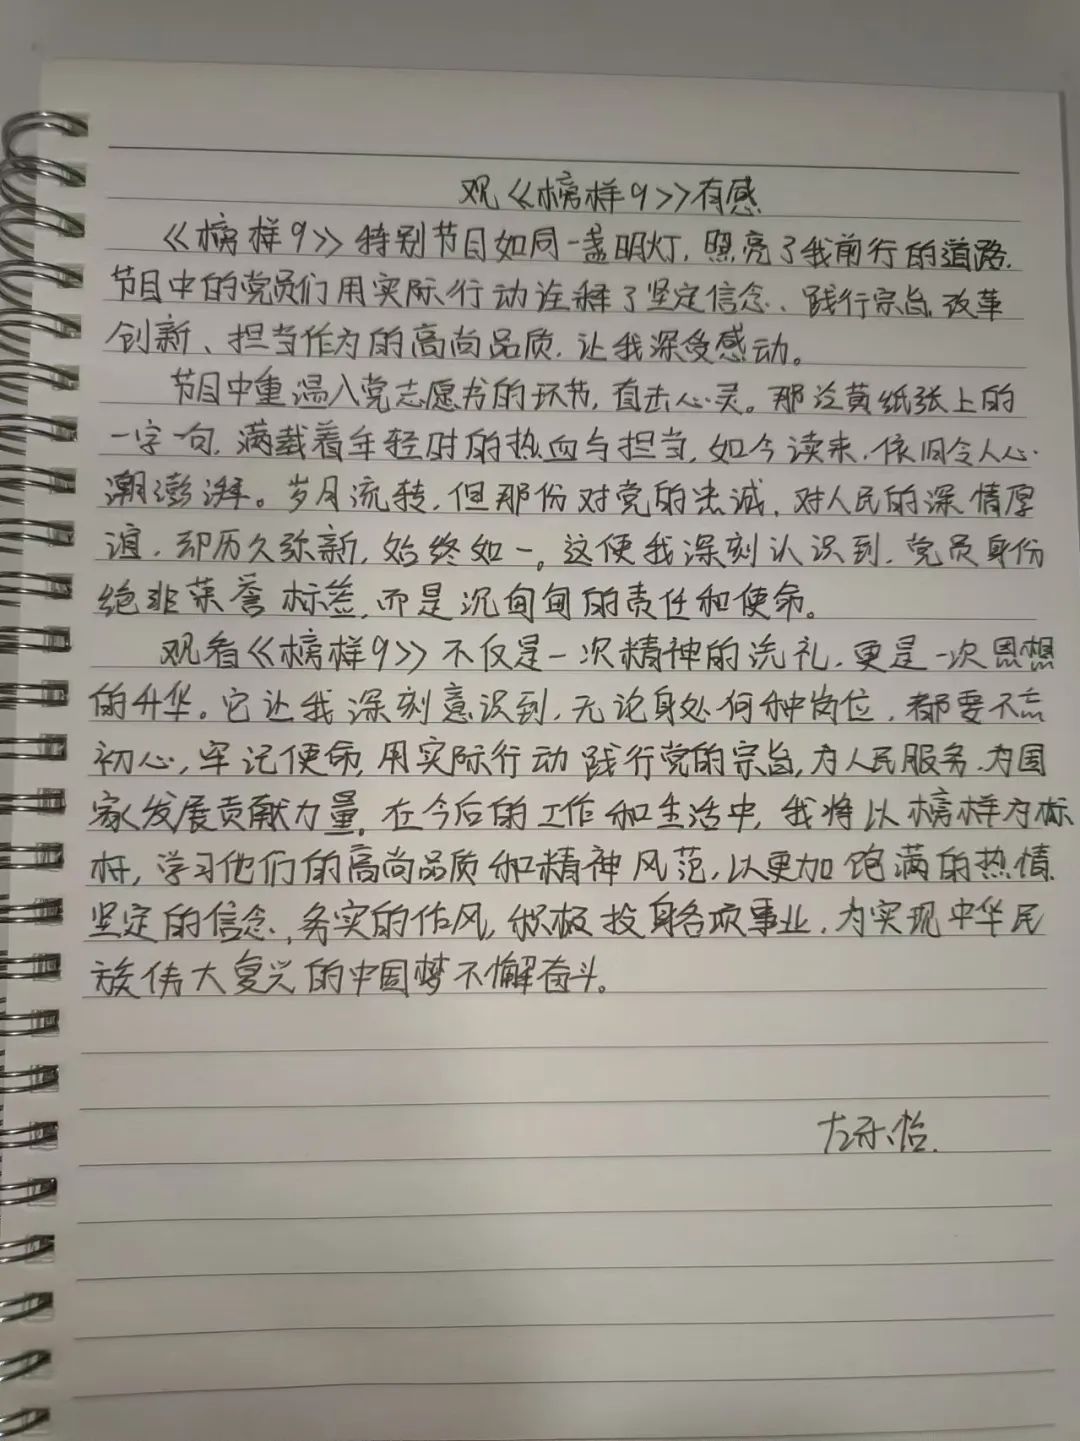 观《榜样9》有感
《榜样9》特别节目如同一盏明灯,照亮了我前行的道路.
节目中的党员们用实际行动诠释了坚定信念、践行宗旨、改革
创新、担当作为的高尚品质,让我深受感动。
节目中重温入党志愿书的环节,直击心灵。那泛黄纸张上的
一字一句,满载着年轻时的热血与担当,如今读来,依旧令人心
潮澎湃。岁月流转,但那份对党的忠诚,对人民的深情厚
谊,却历久弥新,始终如一。这使我深刻认识到,党员身份
绝非荣誉标签,而是沉甸甸的责任和使命。
观看《榜样9》不仅是一次精神的洗礼,更是一次思想
的升华。它让我深刻意识到,无论身处何种岗位,都要不忘
初心,牢记使命,用实际行动践行党的宗旨,为人民服务、为国
家发展贡献力量。在今后的工作和生活中,我将以榜样为标
杆,学习他们的高尚品质和精神风范,以更加饱满的热情、
坚定的信念、务实的作风,积极投身各项事业,为实现中华民
族伟大复兴的中国梦不懈奋斗。
左乐怡.